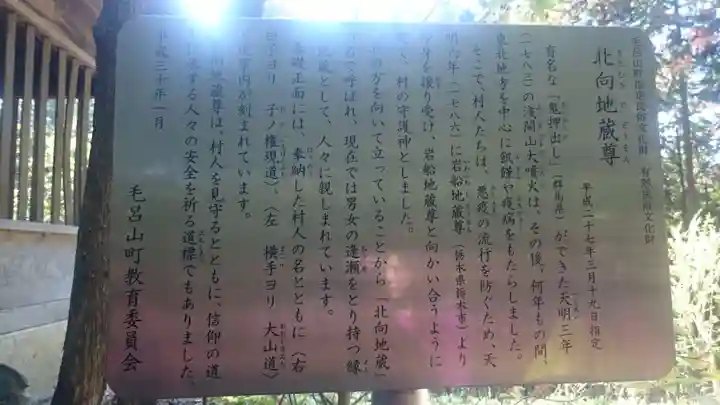 毛呂山町指定民俗文化財 有形民俗文化財
北向地蔵尊
平成二十七年三月十九日指定
有名な「鬼押出し」(群馬県)ができた天明三年
(一七八三)の浅間山大噴火は、その後、何年もの間、
東北地方を中心に飢饉や疫病をもたらしました。
そこで、村人たちは、悪疫の流行を防ぐため、天
明六年(一七八六)に岩船地蔵尊(栃木県栃木市)より
を譲り受け、岩船地蔵尊と向かい合うように
、村の守護神としました。
の方を向いて立っていることから「北向地蔵」
で呼ばれ、現在では男女の逢瀬をとり持つ縁
地蔵として、人々に親しまれています。
基礎正面には、奉納した村人の名とともに(右
ヨリ 子ノ権現道)、(左 横手ヨリ 大山道)
道案内が刻まれています。
地蔵尊は、村人を見守るとともに、信仰の道
する人々の安全を祈る道標でもありました。
平成三十年一月
毛呂山町教育委員会